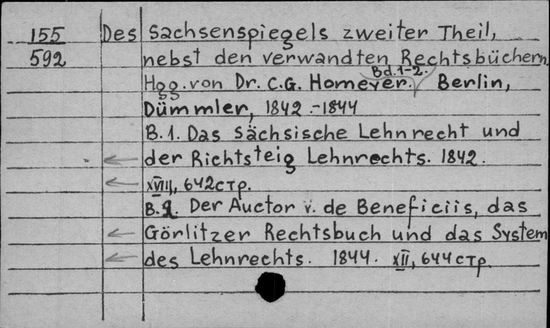 155 Des Sachsenspiegels zweiter Theil,
592 nebst den verwandten Rechtsbüchern.
Hgg. von Dr. C.G. Homeyer. Bd.1-2. Berlin,
Dümmler, 1842.-1844
B.1. Das Sächsische Lehnrecht und
der Richtsteig Lehnrechts. 1842.
XVIII, 642 стр.
B.2. Der Auctor v. de Beneficiis, das
Görlitzer Rechtsbuch und das System
des Lehnrechts. 1844. XII, 644 стр.